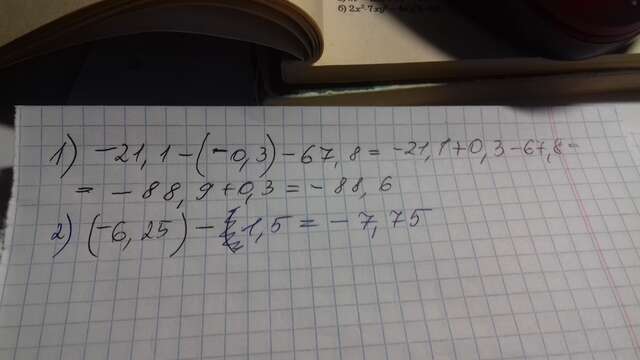 б) 2x²·7xy
1) -21,1-(-0,3)-67,8=-21,1+0,3-67,8=
= -88,9+0,3=-88,6
2) (-6,25)-1,5=-7,75